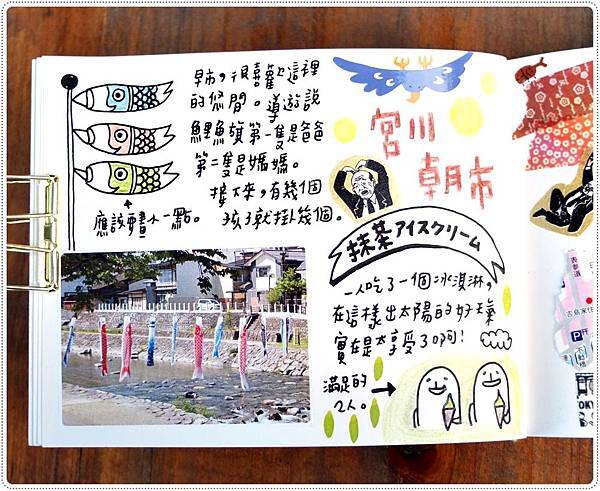 早市，很喜歡這裡
的悠閒。導遊說
鯉魚旗第一隻是爸爸
第二隻是媽媽。
接下來，有幾個
孩子就掛幾個。
應該要畫小一點。
宮川
朝市
抹茶アイスクリーム
一人吃了一個冰淇淋，
在這樣出太陽的好天氣
實在是太享受了啊！
滿足的
2人。
P
P